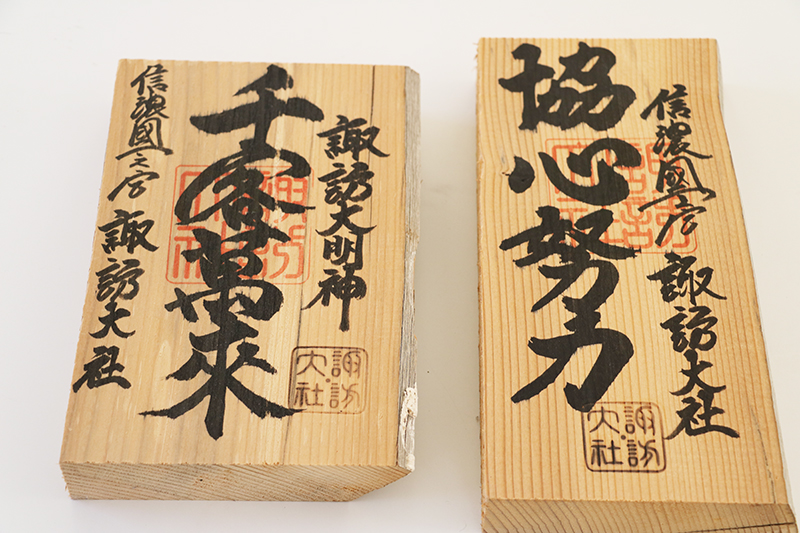 諏訪大明神
千客萬來
信濃國一之宮 諏訪大社
諏訪大社
諏訪大社
信濃國一之宮 諏訪大社
協心努力
諏訪大社
諏訪大社